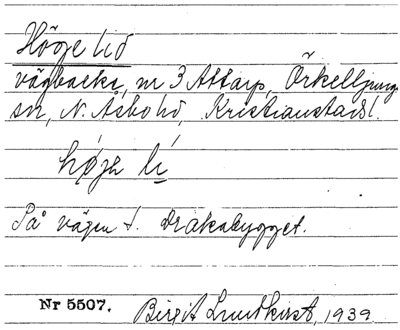 Höge lid
vägbacke, nr 3 Attarp, Örkelljunga
sn, N. Åsbo hd, Kristianstads l.
høɡə lí
På vägen t. Drakabygget.
Nr 5507. Birgit Lundkvist, 1939